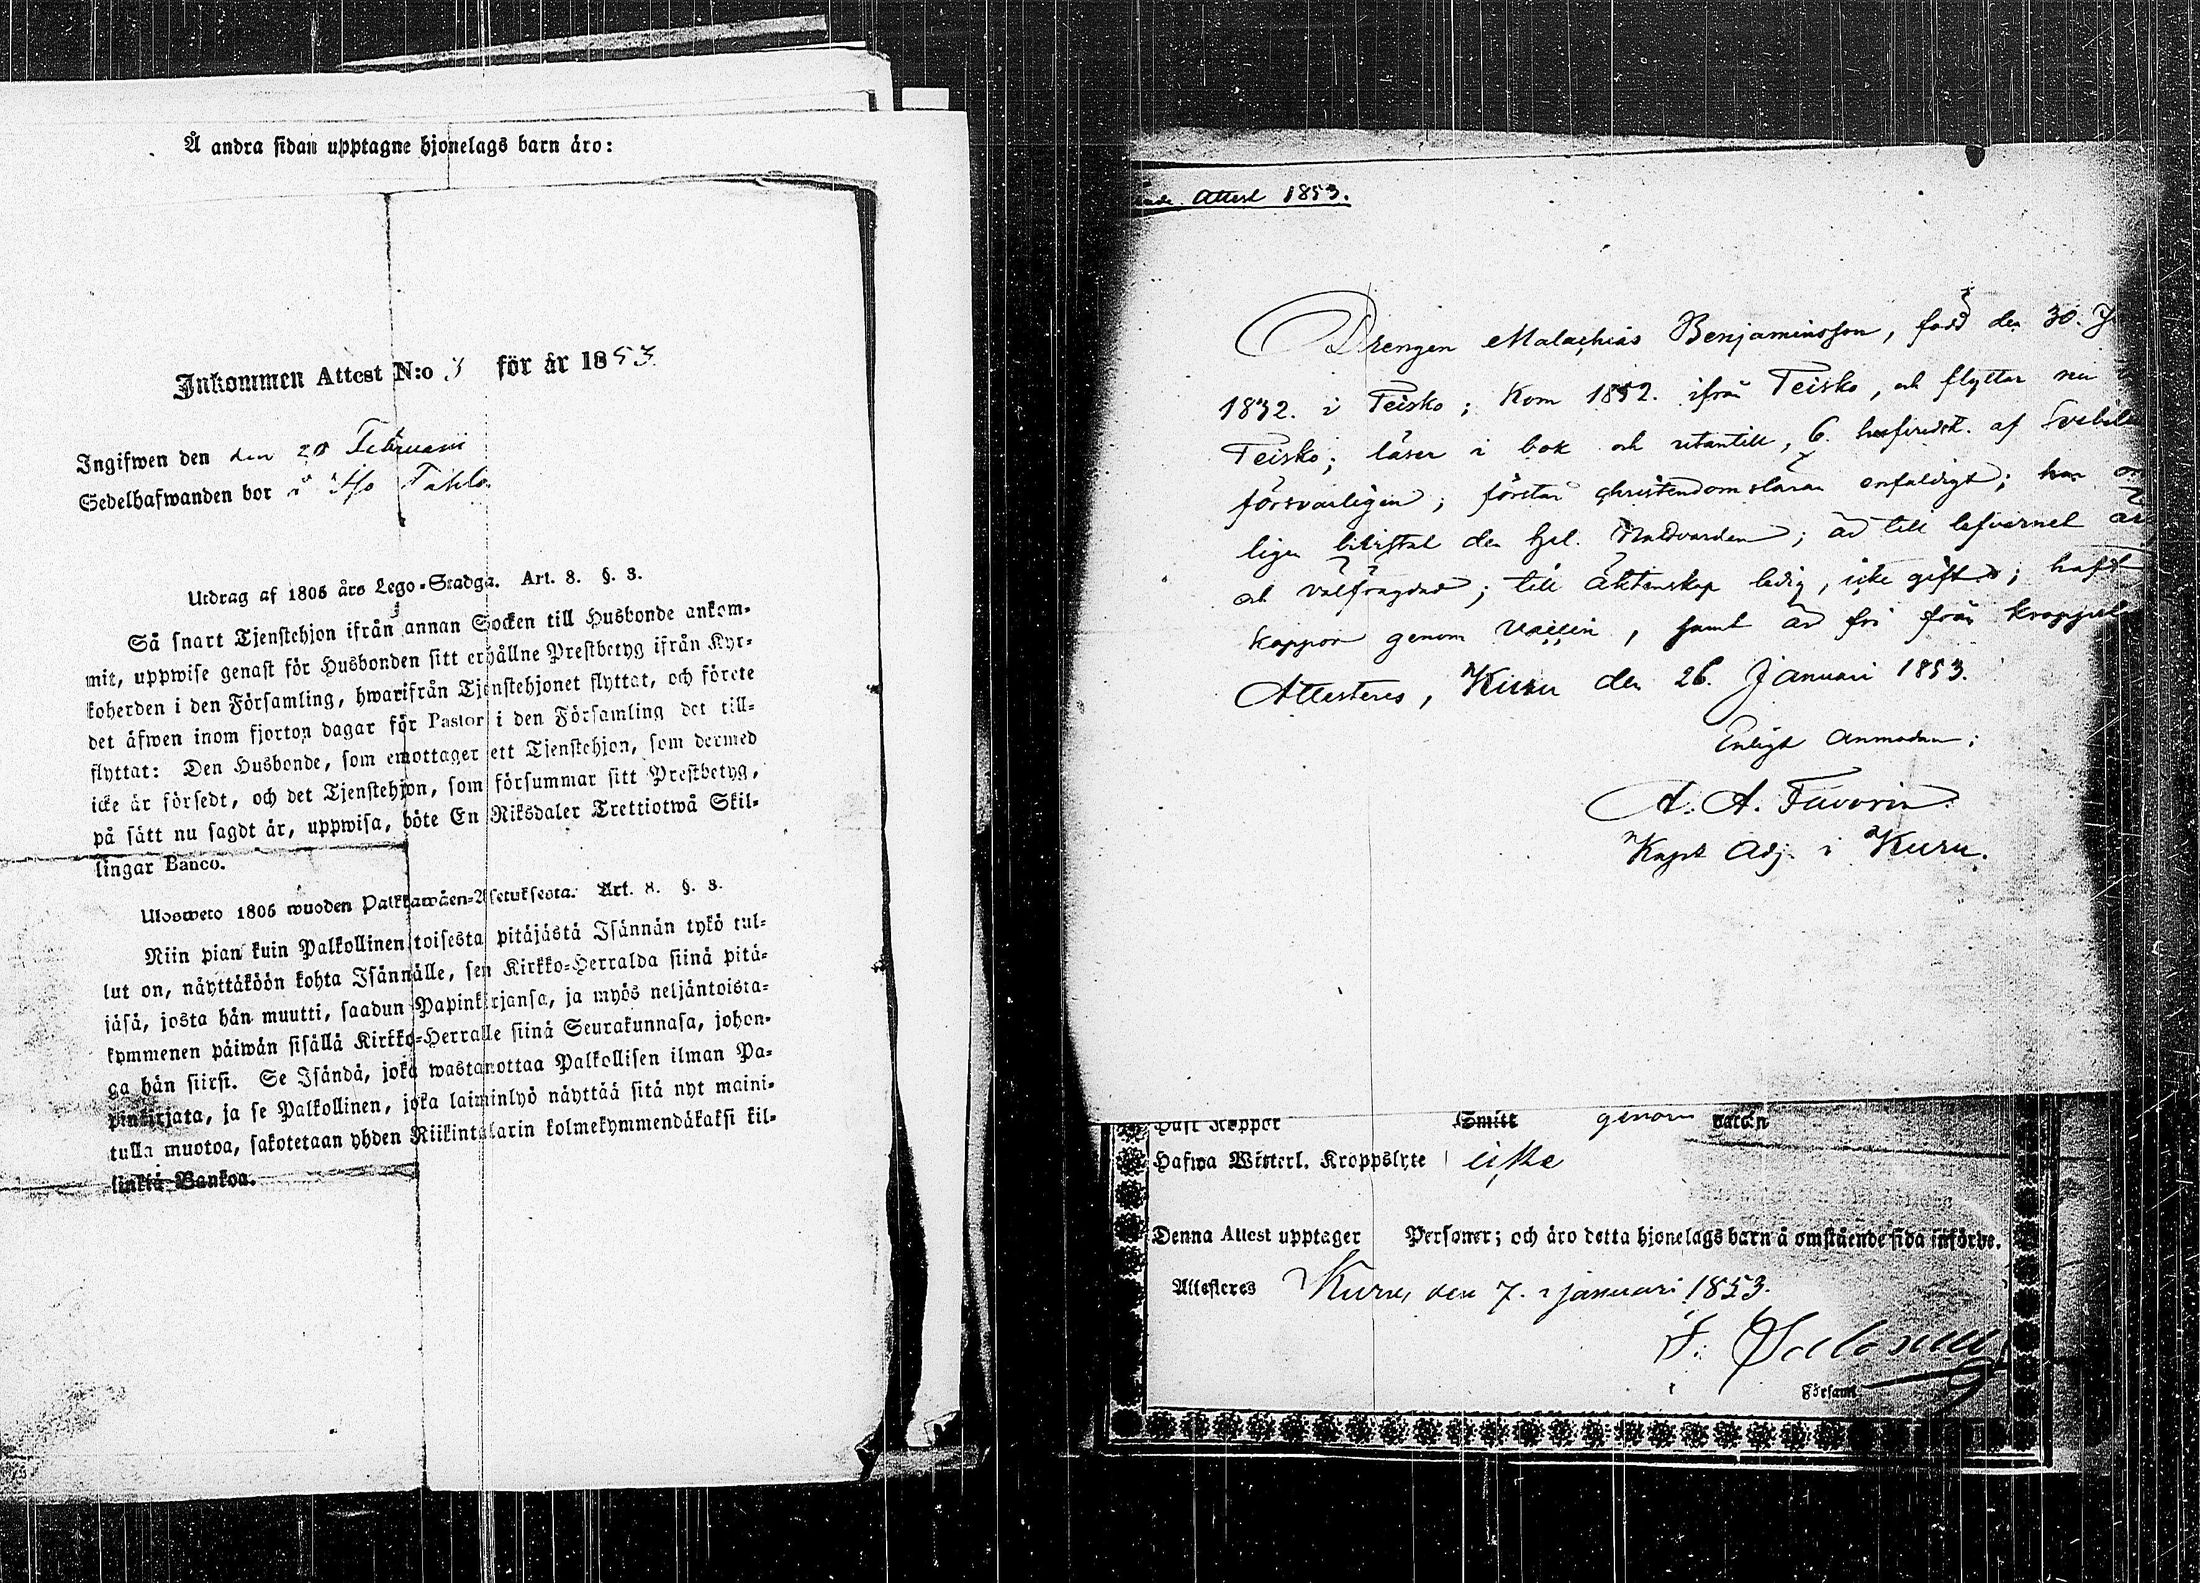 Å andra sidan upptagne hjonelags barn äro:
Inkommen Attest N:o 3 för år 1853.
Ingifwen den den 20 Februari
Sedelhafwanden bor i
Utdrag af 1805 års Lego-Stadga. Art. 8. §. 3.
Så snart Tjenstehjon ifrån annan Socken till Husbonde ankom-
mit, uppwise genast för Husbonden sitt erhållne Prestbetyg ifrån Kyr-
koherden i den Församling, hwarifrån Tjenstehjonet flyttat, och förete
det äfwen inom fjorton dagar för Pastor i den Församling det till-
flyttat: Den Husbonde, som emottager ett Tjenstehjon, som dermed
icke är försedt, och det Tjenstehjon, som försummar sitt Prestbetyg,
på sätt nu sagdt är, uppwisa, böte En Riksdaler Trettiotwå Skil-
lingar Banco.
Ulosweto 1805 wuoden Palkkawäen-Asetuksesta. Art. 8. §. 3.
Niin pian kuin Palkollinen toisesta pitäjästä Isännän tykö tul-
lut on, näyttäköön kohta Isännälle, sen Kirkko-Herralda siinä pitä-
jäsä, josta hän muutti, saadun Papinkirjansa, ja myös neljäntoista-
kymmenen päiwän sisällä Kirkko-Herralle siinä Seurakunnasa, johon-
ga hän siirsi. Se Isändä, joka wastanottaa Palkollisen ilman Pa-
pinkirjata, ja se Palkollinen, joka laiminlyö näyttää sitä nyt maini-
tulla muotoa, sakotetaan yhden Riikintalarin kolmekymmendäkaksi kil-
linkiä Bankoa.
Attest 1853.
Drengen Malachias Benjaminsson, född den 30. J
1832. i Teisko; Kom 1852. ifrån Teisko, och flyttar nu
Teisko; läser i bok och utantill, 6. husfredst. af Svebili
försvarligen; förstår christendomsläran enfaldigt; har
ligen bivistat den hel. Nattvarden; är till lefvernet är
och välfrägdad; till äktenskap ledig, icke gift; haft
koppor genom vaccin, samt är fri från kroppsl
Attesteras, Kuru den 26. Januari 1853.
Enligt anmodan;
A. A. Favorin.
Kapl. Adj. i Kuru.
Haft Koppor Smitt genom vaccin
Hafwa Wisterl. Kroppslyte icke
Denna Attest upptager Personer; och äro detta hjonelags barn å omstående sida införde.
Attesteres Kuru, den 7. januari 1853.
Församl.